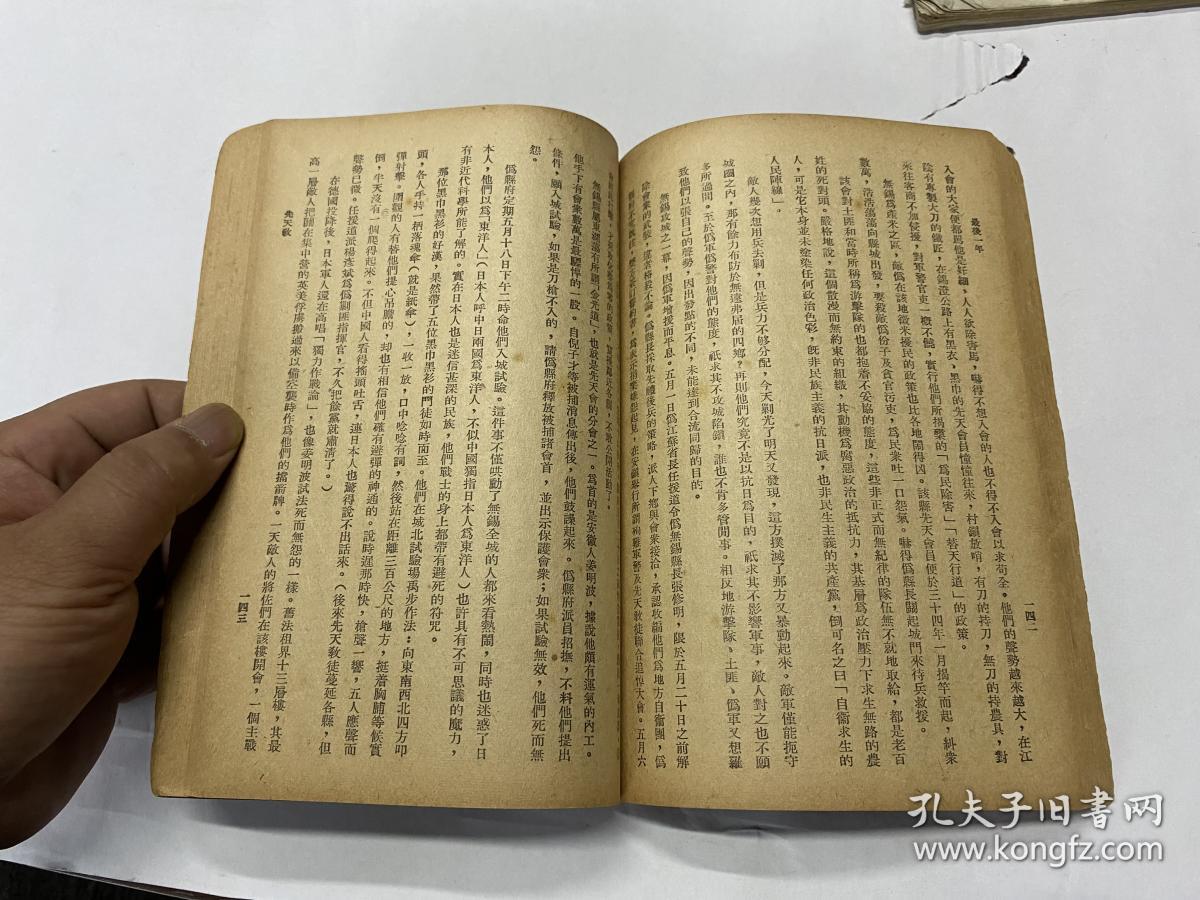 最後一年
一四二
入會的大家便都罵他是奸細，人人欲除害馬，嚇得不想入會的人也不得不入會以求苟全。他們的聲勢越來越大，在江
陰有專製大刀的鐵匠，在錫澄公路上有黑衣，黑巾的先天會員憧憧往來，村鎮放哨，有刀的持刀，無刀的持農具，對
來往客商不加侵擾，對軍警官吏一概不饒，實行他們所揭櫫的「爲民除害」「替天行道」的政策。
無錫爲產米之區，敵僞在該地徵米擾民的政策也比各地鬧得凶。該縣先天會員便於三十四年一月揭竿而起，糾衆
數萬，浩浩蕩蕩向縣城出發，要殺敵僞份子及貪官污吏，爲民衆吐一口怨氣。嚇得僞縣長關起城門來待兵救援。
該會對土匪和當時所稱爲游擊隊的也都抱着不妥協的態度，這些非正式而無紀律的隊伍無不就地取給，都是老百
姓的死對頭。嚴格地說，這個散漫而無約束的組織，其動機爲腐惡政治的抵抗力，其基層爲政治壓力下求生無路的農
人，可是它本身並未塗染任何政治色彩，旣非民族主義的抗日派，也非民生主義的共產黨，倒可名之曰「自衞求生的
人民陣線」。
敵人幾次想用兵去剿，但是兵力不够分配，今天剿光了明天又發現，這方撲滅了那方又暴動起來。敵軍僅能扼守
城圈之內，那有餘力布防於無遠弗屆的四鄉？再則他們究竟不是以抗日爲目的，祇求其不影響軍事，敵人對之也不願
多所過問。至於僞軍僞警對他們的態度，祇求其不攻城陷鎮，誰也不肯多管閒事。相反地游擊隊、土匪、僞軍又想羅
致他們以張自己的聲勢，因出發點的不同，未能達到合流同歸的目的。
無錫攻城之一幕，因僞軍增援而平息。五月一日僞江蘇省長任援道令僞無錫縣長張修明，限於五月二十日之前解
除會衆的武裝，違者格殺不論。僞縣長採取先禮後兵的策略，派人下鄉與會衆接洽，承認收編他們爲地方自衞團，僞
在安鎮舉行所謂
軍警及先天教徒聯合追悼大會。五月六
不敢公開活動了。
無錫縣屬東湖蕩有所謂「金光道」，也就是先天會的分會之一。爲首的是安徽人姜明波，據說他頗有運氣的內工。
他手下有會衆數萬是最驃悍的一股。自倪子才等被捕消息傳出後，他們鼓譟起來。僞縣府派員招撫，不料他們提出
條件，願入城試驗，如果是刀槍不入的，請僞縣府釋放被捕諸會首，並出示保護會衆；如果試驗無效，他們死而無
怨。
僞縣府定期五月十八日下午二時命他們入城試驗。這件事不僅哄動了無錫全城的人都來看熱鬧，同時也迷惑了日
本人，他們以爲「東洋人」（日本人呼中日兩國爲東洋人，不似中國獨指日本人爲東洋人）也許具有不可思議的魔力，
有非近代科學所能了解的。實在日本人也是迷信甚深的民族，他們戰士的身上都帶有避死的符咒。
那位黑巾黑衫的好漢，果然帶了五位黑巾黑衫的門徒如時而至。他們在城北試驗場禹步作法：向東南西北四方叩
頭，各人手持一柄落魂傘（就是紙傘），一收一放，口中唸唸有詞，然後站在距離三百公尺的地方，挺着胸脯等候實
彈射擊。圍觀的人有替他們提心吊膽的，却也有相信他們確有避彈的神通的。說時遲那時快，槍聲一響，五人應聲而
倒，半天沒有一個爬得起來。不但中國人看得搖頭吐舌，連日本人也驚得說不出話來。（後來先天敎徒蔓延各縣，但
聲勢已微。任援道派楊彥斌爲僞剿匪指揮官，不久把餘黨就肅清了。）
在德國投降後，日本軍人還在高唱「獨力作戰論」，也像姜明波試法死而無怨的一樣。舊法租界十三層樓，其最
高一層敵人把關在集中營的英美俘虜搬過來以備空襲時作爲他們的擋箭牌。一天敵人的將佐們在該樓開會，一個主戰
先天敎
一四三
孔夫子旧书网
www.kongfz.com